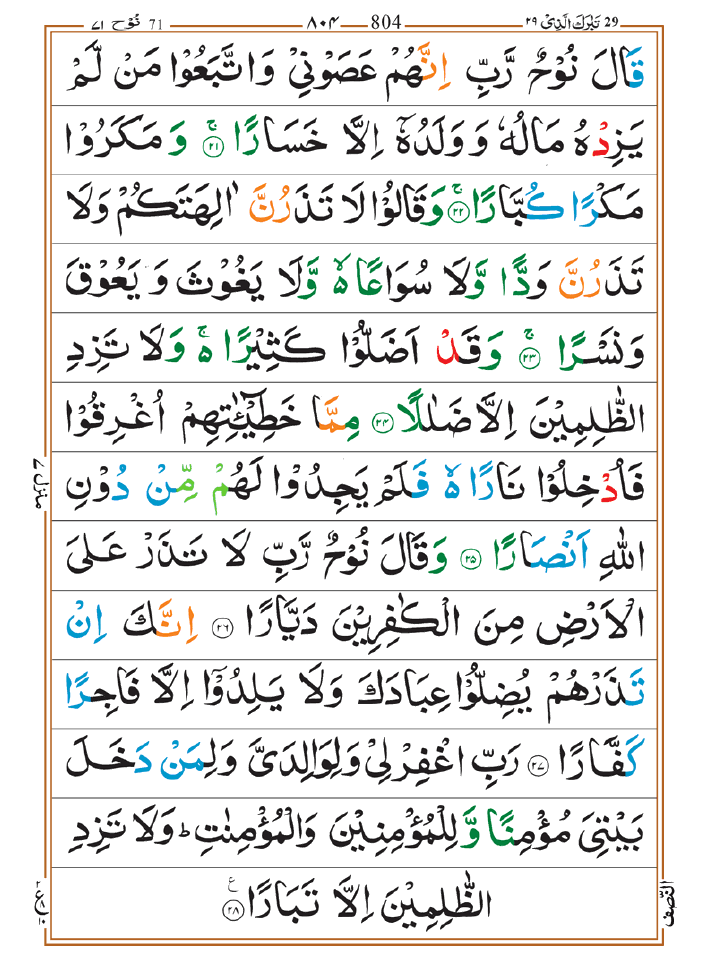 29 تَبٰرَكَ الَّذِیْ ۲۹ 804 ۸۰۴ 71 نُوْح ۷۱
قَالَ نُوْحٌ رَّبِّ اِنَّهُمْ عَصَوْنِیْ وَاتَّبَعُوْا مَنْ لَّمْ
یَزِدْهُ مَالُهٗ وَوَلَدُهٗۤ اِلَّا خَسَارًا ۚ‏﴿۲۱﴾ وَمَكَرُوْا
مَكْرًا كُبَّارًا ۚ‏﴿۲۲﴾ وَقَالُوْا لَا تَذَرُنَّ اٰلِهَتَكُمْ وَلَا
تَذَرُنَّ وَدًّا وَّلَا سُوَاعًا ۙ۬ وَّلَا یَغُوْثَ وَیَعُوْقَ
وَنَسْرًا ۚ‏﴿۲۳﴾ وَقَدْ اَضَلُّوْا كَثِیْرًا ۚ۬ وَلَا تَزِدِ
الظّٰلِمِیْنَ اِلَّا ضَلٰلًا ﴿۲۴﴾ مِمَّا خَطِیْٓـٰٔتِهِمْ اُغْرِقُوْا
فَاُدْخِلُوْا نَارًا ۙ۬ فَلَمْ یَجِدُوْا لَهُمْ مِّنْ دُوْنِ
اللّٰهِ اَنْصَارًا ﴿۲۵﴾ وَقَالَ نُوْحٌ رَّبِّ لَا تَذَرْ عَلَی
الْاَرْضِ مِنَ الْكٰفِرِیْنَ دَیَّارًا ﴿۲۶﴾ اِنَّكَ اِنْ
تَذَرْهُمْ یُضِلُّوْا عِبَادَكَ وَلَا یَلِدُوْۤا اِلَّا فَاجِرًا
كَفَّارًا ﴿۲۷﴾ رَبِّ اغْفِرْلِیْ وَلِوَالِدَیَّ وَلِمَنْ دَخَلَ
بَیْتِیَ مُؤْمِنًا وَّلِلْمُؤْمِنِیْنَ وَالْمُؤْمِنٰتِ ؕ وَلَا تَزِدِ
الظّٰلِمِیْنَ اِلَّا تَبَارًا ﴿۲۸﴾ ع
منزل ۷
النّصف